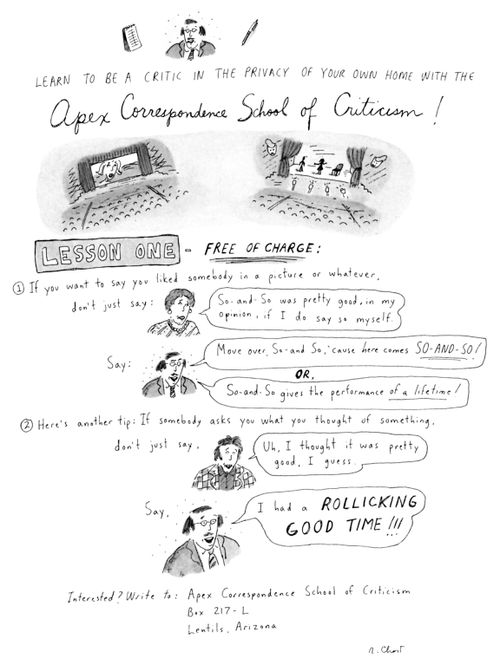 LEARN TO BE A CRITIC IN THE PRIVACY OF YOUR OWN HOME WITH THE
Apex Correspondence School of Criticism!
LESSON ONE - FREE OF CHARGE:
① If you want to say you liked somebody in a picture or whatever,
don't just say:
So-and-So was pretty good, in my
opinion, if I do say so myself.
Say:
Move over, So-and So, 'cause here comes SO-AND-SO!
OR,
So-and-So gives the performance of a lifetime!
② Here's another tip: If somebody asks you what you thought of something,
don't just say,
Uh, I thought it was pretty
good, I guess.
Say,
I had a ROLLICKING
GOOD TIME!!!
Interested? Write to: Apex Correspondence School of Criticism
Box 217-L
Lentils, Arizona
R. Chast